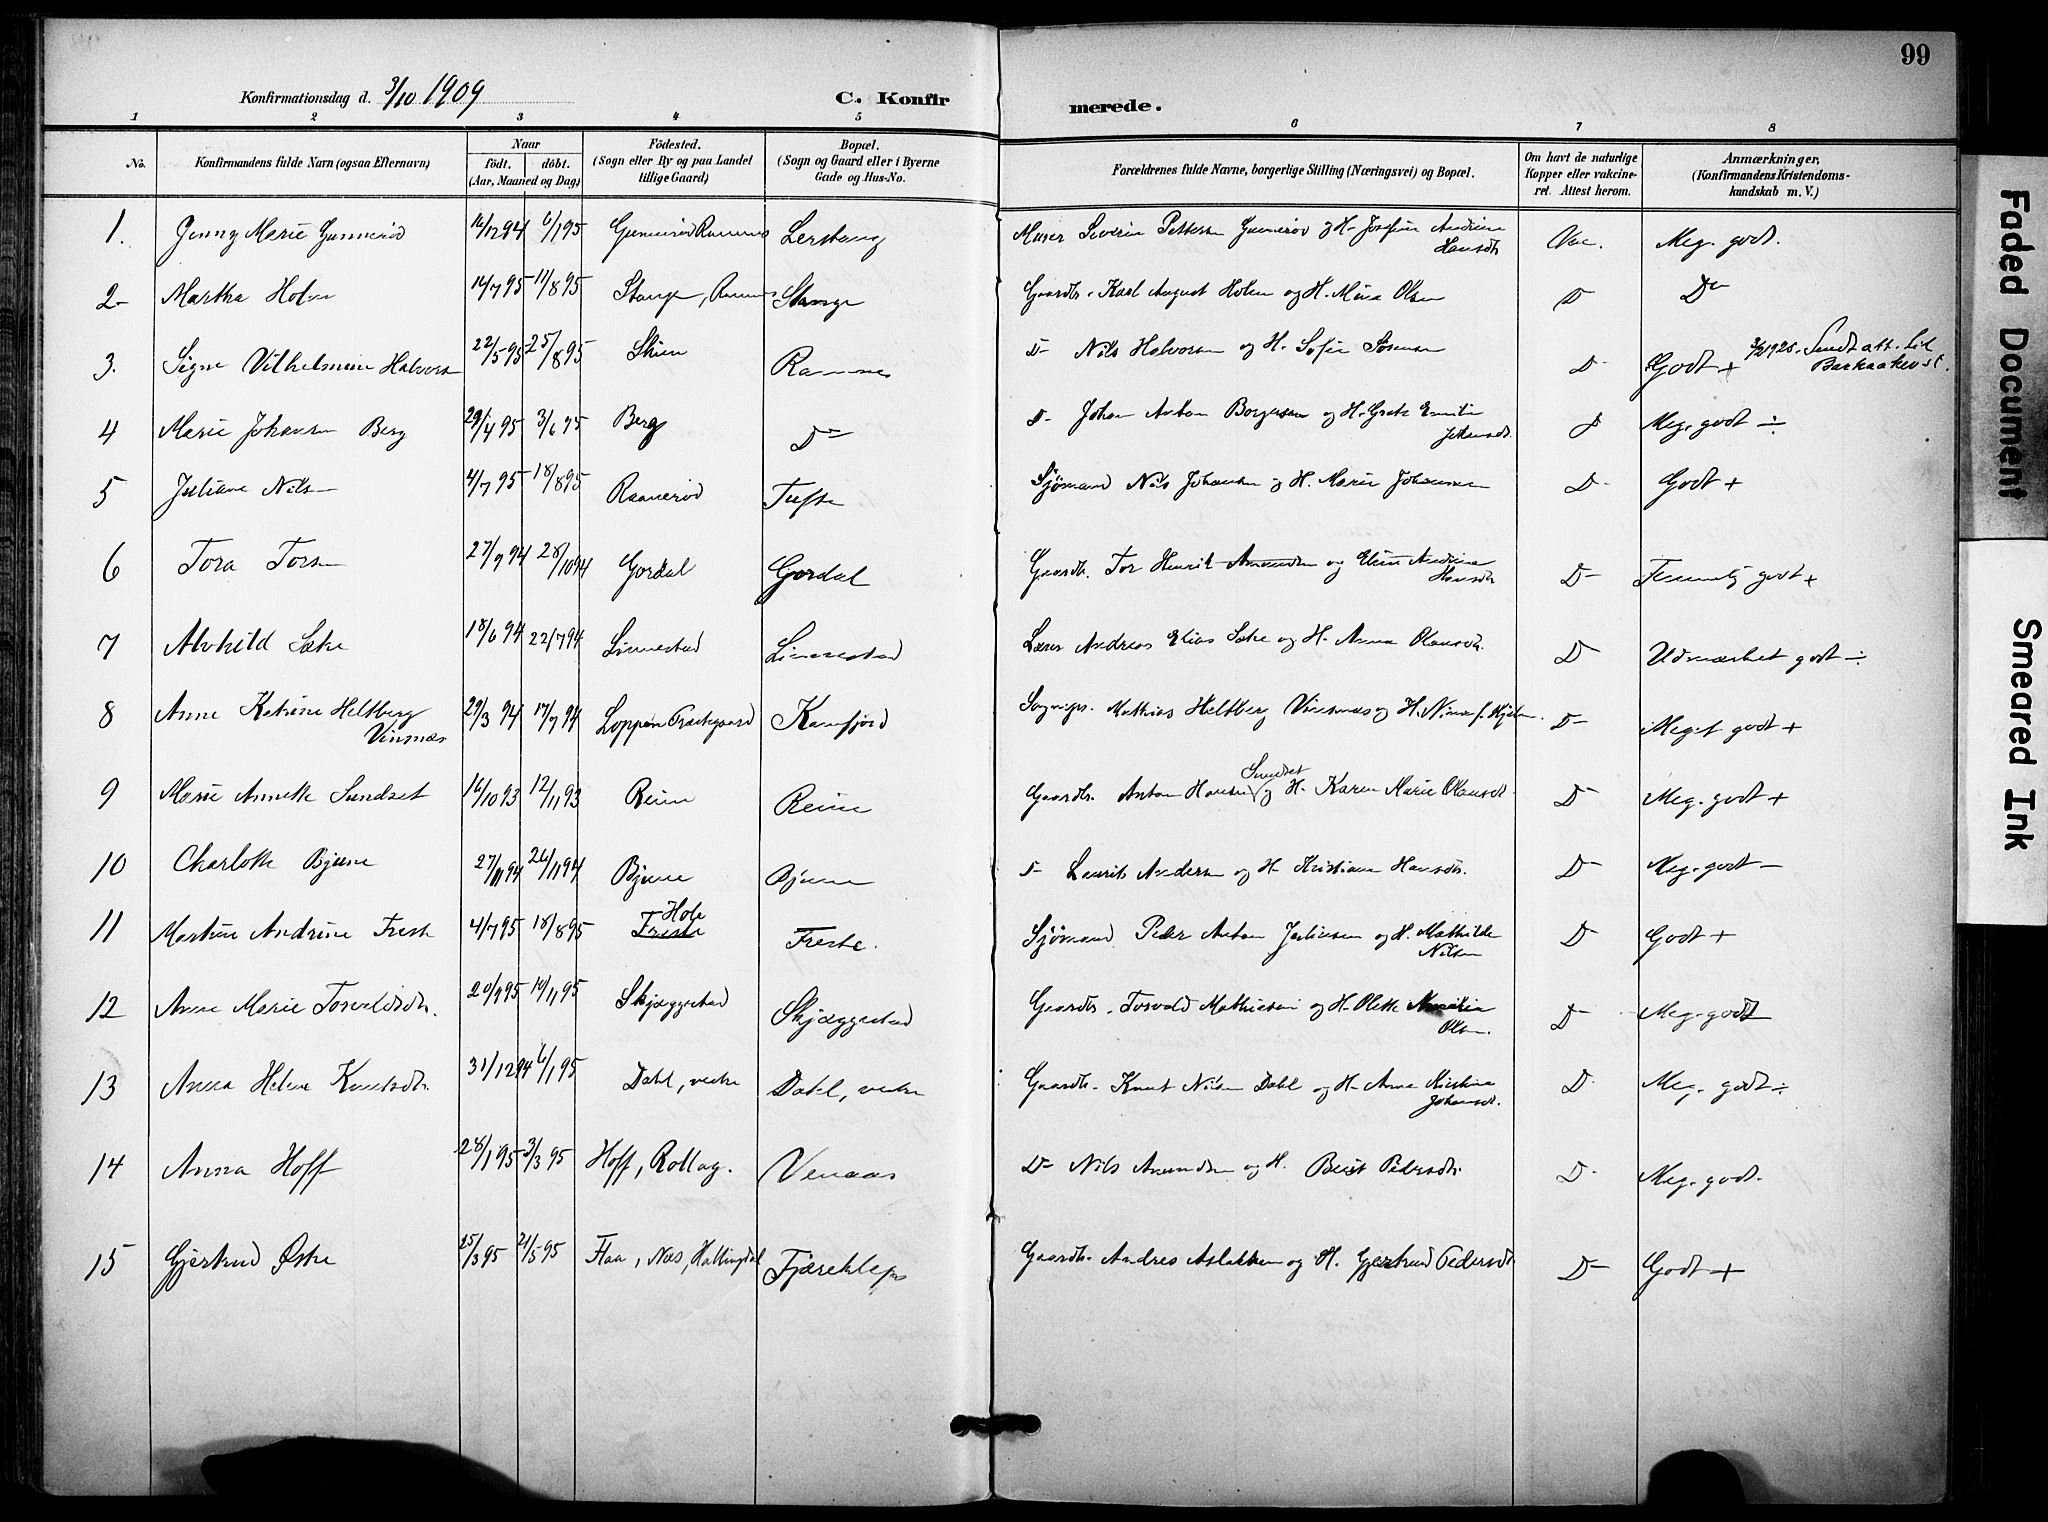 99
Konfirmationsdag d. 3/10 1909
C. Konfirmerede.
1 2 3 4 5 6 7 8
No.
Konfirmandens fulde Navn (ogsaa Efternavn)
Naar
födt. döbt.
(Aar, Maaned og Dag)
Födested.
(Sogn eller By og paa Landet
tillige Gaard)
Bopæl.
(Sogn og Gaard eller i Byerne
Gade og Hus-No.
Forældrenes fulde Navne, borgerlige Stilling (Næringsvei) og Bopæl.
Om havt de naturlige
Kopper eller vakcine-
ret. Attest herom.
Anmærkninger,
(Konfirmandens Kristendoms-
kundskab m. V.)
1. Jenny Marie Gunnerød 16/12 94 6/1 95 Gunnerød Ramnes Lerstang Murer Severin Pettersen Gunnerød og H. Josefine Andrine Hansdtr Vac. Meg. godt.
2 Martha Holm 14/7 95 11/8 95 Stange, Ramnes Stange Gaardb. Karl August Holm og H. Mina Olsen D D
3. Signe Vilhelmine Halvorsen 22/5 95 25/8 95 Skien Ramnes D Nils Halvorsen og H. Sofie D Godt + Sendt att. til Barkaaker st.
4 Marie Johansen Berg 29/4 95 3/6 95 Berg D D Johan Anton Borgersen og H. Grete Emilie Johansdt. D Meg. godt ÷
5 Juliane Nilsen 4/7 95 18/8 95 Raanerød Tufte Sjømand Nils Johansen og H. Marie Johannesen D Godt +
6 Tora Torsen 27/9 94 28/10 94 Gordal Gordal Gaardb. Tor Henrik Amundsen og Elise Andrine Hansdtr D Temmelig godt +
7 Alvhild Sæke 18/6 94 22/7 94 Linnestad Linnestad Lærer Andreas Elias Sæke og H. Anna Olausdtr. D Udmærket godt ÷
8 Anne Katrine Heltberg Vinsnæs 29/3 94 17/7 94 Loppen Præstegaard Kamfjord Sognepr. Mathias Heltberg Vinsnæs og H. Nina f. D Meget godt +
9 Marie Annette Sundset 16/10 93 12/11 93 Reine Reine Gaardb. Anton Hansen Sundset og H. Karen Marie Olausdt. D Meg. godt +
10 Charlotte Bjune 27/ 94 26/11 94 Bjune Bjune D Laurits Andersen og H. Kristiane Hansdtr. D Meg. godt
11 Martine Andrine Freste 4/7 95 18/8 95 Freste Hole Freste. Sjømand Peder Anton Juliusen og H. Mathilde Nilsen D Godt +
12 Anne Marie Torvaldsdtr. 20/9 95 10/11 95 Skjæggestad Skjæggestad Gaardb. Torvald Mathiesen og H. Olette Olsen. D Meg. godt
13 Anna Helene Knutsdtr. 31/12 94 6/1 95 Dahl, vestre Dahl, vestre Gaardb. Knut Nilsen Dahl og H. Anne Kristine Johansdt. D Meg. godt ÷
14 Anna Hoff 28/1 95 3/3 95 Hoff, Rollag. Venaas D Nils Amundsen og H. Berit Pedersdtr. D Meg. godt.
15 Gjertrud Østre 25/3 95 21/5 95 Flaa, Næs, Hallingdal Fjæreklep Gaardb. Andres Aslaksen og H. Gjertrud Pedersdt D Godt +
Faded Document
Smeared Ink